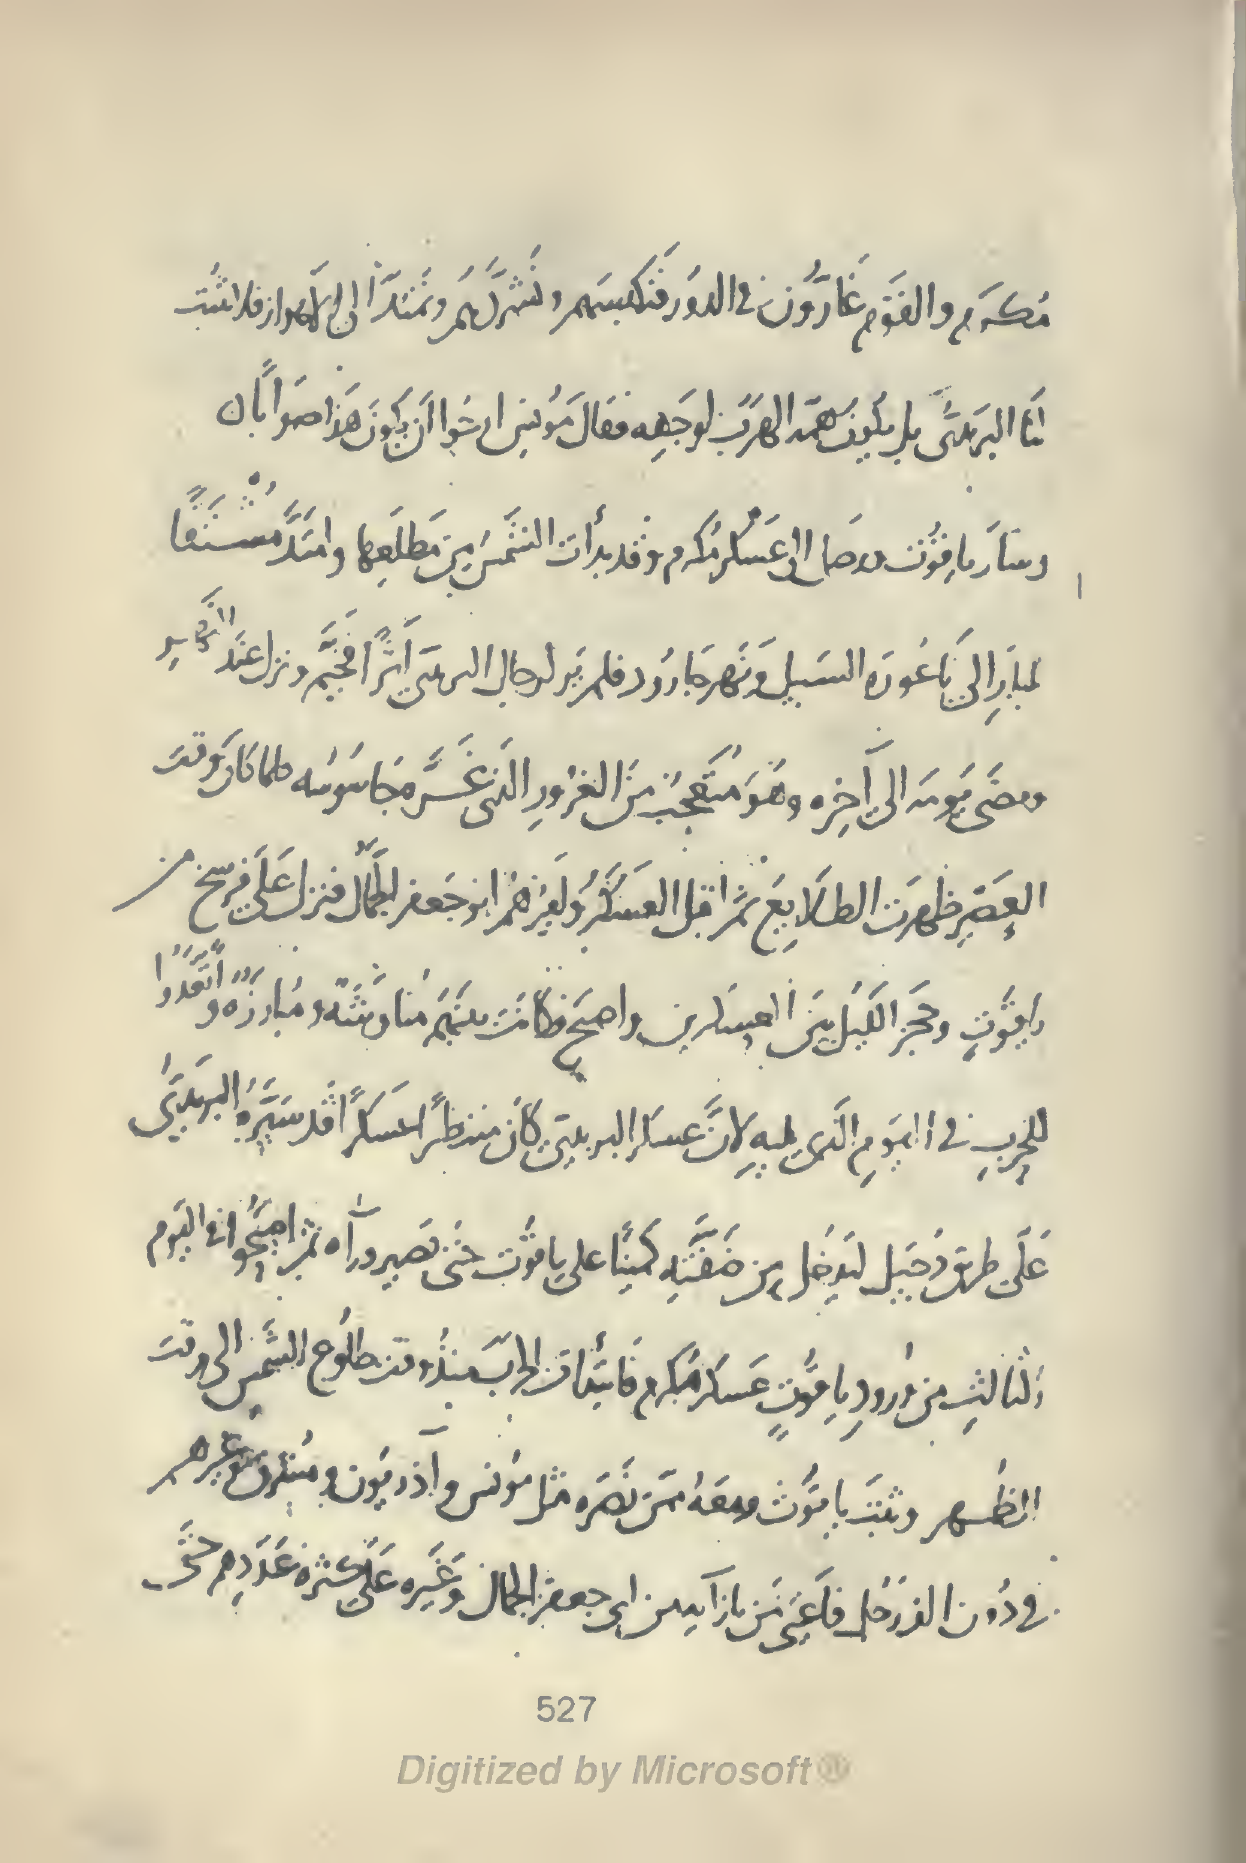 مكرم والقوم غارّون في الدور فنكبسهم ونشرّدهم ونمتدّ الى الاهواز فلا يثبت
لنا البريدى بل يكون همّه الهرب لوجهه فقال مونس ارجوا ان يكون هذا صوابا بان
وسار ياقوت ووصل الى عسكر مكرم وقد بدأت الشمس من مطلعها وامتدّ مشنقا
الى ناعورة السبيل ونهر جارود فلم ير لرجال البريدى اثرا فخيّم ونزل عند
ومضى يومه الى آخره وهو متعجب من الغرور الذى غرّه جاسوسه فلما كان وقت
العصر ظهرت الطلايع ثم اقبل العسكر وليزهم ابو جعفر الجمال فنزل على فرسخ من
ياقوت وحجز الليل بين العسكرين واصبح فكانت بينهم مناوشة ومبارزة واتّعدوا
للحرب في اليوم الذى يليه لانّ عسكر البريدى كان منتظرا عسكرا قد سيّره البريدى
على طريق دجيل ليدخل من ضفّته كمينا على ياقوت حتى تصير وراه ثم اصبحوا في اليوم
الثالث من ورود ياقوت عسكر مكرم فابتدأت الحرب منذ وقت طلوع الشمس الى وقت
الظهر وثبت ياقوت ومعه من نصره مثل مونس وآذريون ومشرق وغيرهم
في دون الف رجل فاعيى من بازآيه من ابى جعفر الجمال وغيره على كثرة عددهم حتى
527
Digitized by Microsoft®